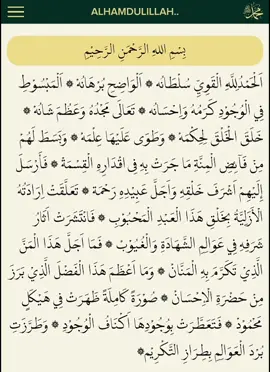 ALHAMDULILLAH..
بِسْمِ اللهِ الرَّحْمٰنِ الرَّحِيْمِ
اَلْحَمْدُلِلّٰهِ الْقَوِيِّ سُلْطَانُه * اَلْوَاضِحِ بُرْهَانُه * اَلْمَبْسُوْطِ
فِي الْوُجُوْدِ كَرَمُهُ وَاِحْسَانُه * تَعَالَى مَجْدُهُ وَعَظُمَ شَانُهْ *
خَلَقَ الْخَلْقَ لِحِكْمَه * وَطَوَى عَلَيْهَا عِلْمَهْ * وَبَسَطَ لَهُمْ
مِنْ فَآئِضِ الْمِنَّةِ مَا جَرَتْ بِهِ فِي اَقْدَارِهِ الْقِسْمَةْ * فَاَرْسَلَ
اِلَيْهِمْ اَشْرَفَ خَلْقِهِ وَاَجَلَّ عَبِيْدِهِ رَحْمَةْ * تَعَلَّقَتْ اِرَادَتُهُ
الْاَزَلِيَّةُ بِخَلْقِ هٰذَا الْعَبْدِ الْمَحْبُوْبِ * فَانْتَشَرَتْ اٰثَارُ
شَرَفِهِ فِي عَوَالِمِ الشَّهَادَةِ وَالْغُيُوْبِ * فَمَا اَجَلَّ هٰذَا الْمَنَّ
الَّذِيْ تَكَرَّمَ بِهِ الْمَنَّانْ * وَمَا اَعْظَمَ هٰذَا الْفَضْلَ الَّذِيْ بَرَزَ
مِنْ حَضْرَةِ الْاِحْسَانْ * صُوْرَةً كَامِلَةً ظَهَرَتْ فِي هَيْكَلٍ
مَحْمُوْدْ * فَتَعَطَّرَتْ بِوُجُوْدِهَا اَكْنَافُ الْوُجُوْدِ * وَطَرَّزَتْ
بُرْدَ الْعَوَالِمِ بِطِرَازِ التَّكْرِيْمْ *